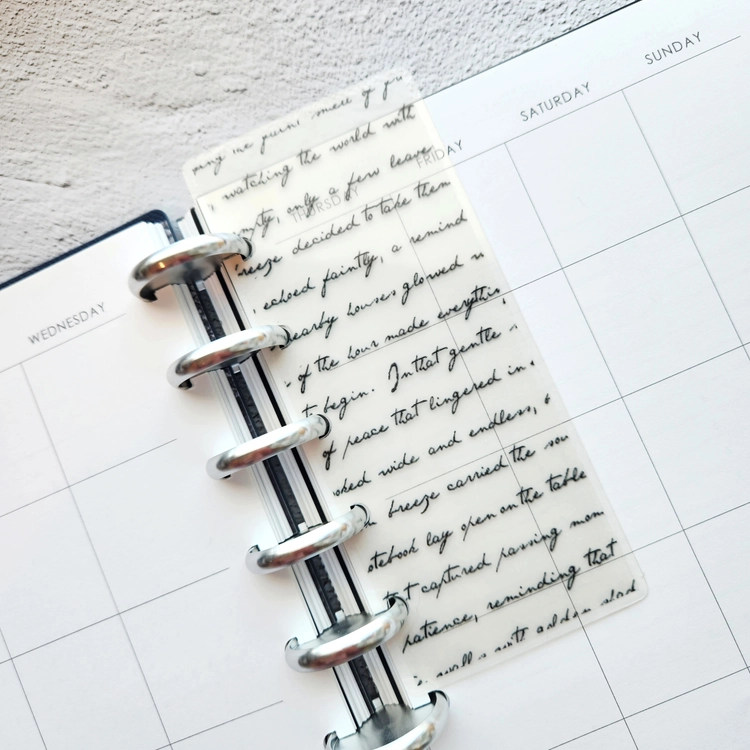 WEDNESDAY
THURSDAY
FRIDAY
SATURDAY
SUNDAY
the faint smell of
watching the world with
only a few leave
decided to take them
echoed faintly, a remind
houses glowed
of the hour made everythin
begin. In that gentle
of peace that lingered in
wide and endless,
breeze carried the
lay open on the table
captured passing mom
patience, reminding that